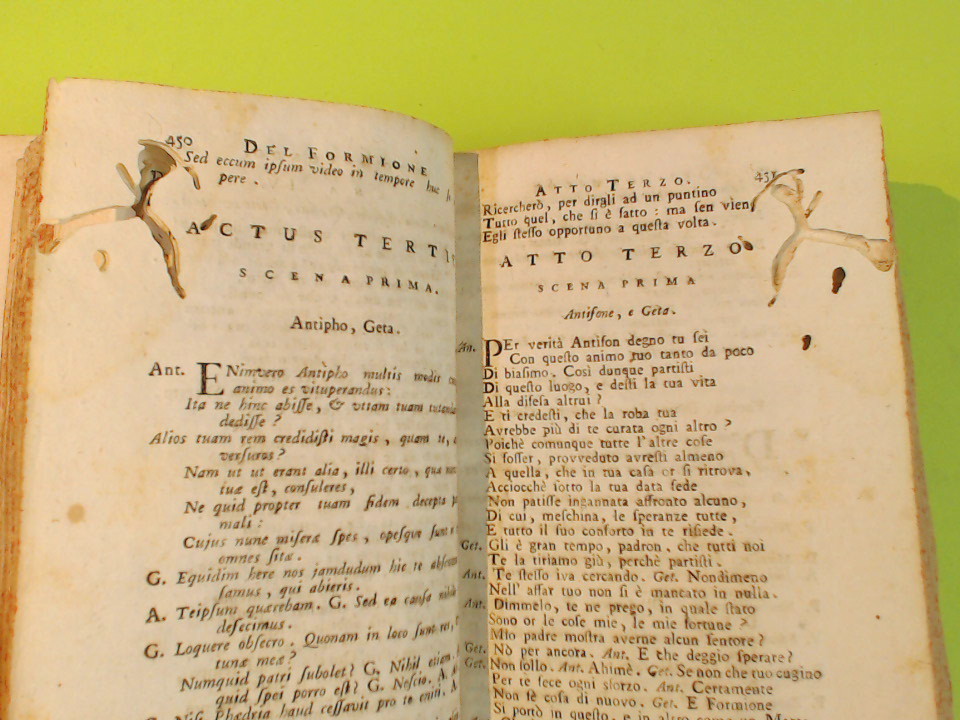 450
DEL FORMIONE
Sed eccum ipſum video in tempore huc
pere.
ACTUS TERTI
SCENA PRIMA.
Antipho, Geta.
Ant. ENimvero Antipho multis modis cu
animo es vituperandus:
Ita ne hinc abiſſe, & vitam tuam tutandam
dediſſe?
Alios tuam rem credidiſti magis, quam tu,
verſuros?
Nam ut ut erant alia, illi certo, quæ nunc
tuæ eſt, conſuleres,
Ne quid propter tuam fidem decepta
mali:
Cujus nunc miſeræ ſpes, opeſque ſunt
omnes ſitæ.
G. Equidim here nos jamdudum hic te abſen
ſamus, qui abieris.
A. Teipſum quærebam. G. Sed ea cauſa nihil
defecimus.
G. Loquere obſecro. Quonam in loco ſunt res,
tunæ meæ?
Numquid patri ſubolet? G. Nihil etiam.
quid ſpei porro eſt? G. Neſcio. A.
G. Niſi Phædria haud ceſſavit pro te eniti. A.
ATTO TERZO.
Ricercherò, per dirgli ad un puntino
Tutto quel, che ſi è fatto: ma ſen vien
Egli ſteſſo opportuno a queſta volta.
ATTO TERZO
SCENA PRIMA
Antifone, e Geta.
An. PEr verità Antifon degno tu ſei
Con queſto animo tuo tanto da poco
Di biaſimo. Così dunque partiſti
Di queſto luogo, e deſti la tua vita
Alla difeſa altrui?
E ti credeſti, che la roba tua
Avrebbe più di te curata ogni altro?
Poichè comunque tutte l'altre coſe
Si foſſer, provveduto avreſti almeno
A quella, che in tua caſa or ſi ritrova,
Acciocchè ſotto la tua data fede
Non patiſſe ingannata affronto alcuno,
Di cui, meſchina, le ſperanze tutte,
E tutto il ſuo conforto in te riſiede.
Get. Gli è gran tempo, padron, che tutti noi
Te la tiriamo giù, perchè partiſti.
Ant. Te ſteſſo iva cercando. Get. Nondimeno
Nell' affar tuo non ſi è mancato in nulla.
Ant. Dimmelo, te ne prego, in quale ſtato
Sono or le coſe mie, le mie fortune?
Mio padre moſtra averne alcun ſentore?
Get. Nò per ancora. Ant. E che deggio ſperare?
Get. Non ſollo. Ant. Ahimè. Get. Se non che tuo cugino
Per te fece ogni sforzo. Ant. Certamente
Non fè coſa di nuovo. Get. E Formione
Si portò in queſto, e in altro come un